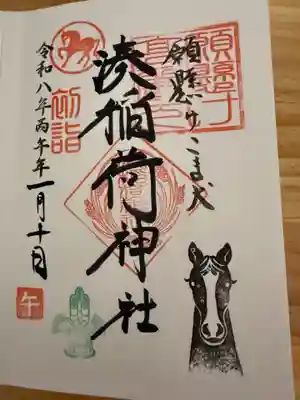 願懸け こま犬
湊稲荷神社
初詣
令和八年丙午年一月十日
午